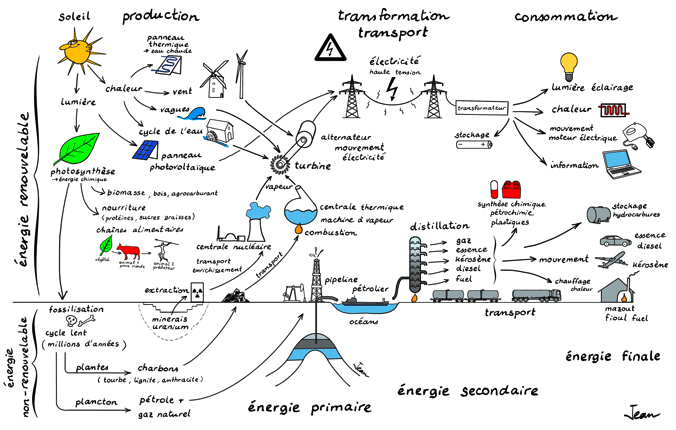 soleil
production
transformation
transport
consommation
panneau
thermique
→ eau chaude
chaleur
vent
lumière
vagues
cycle de l'eau
panneau
photovoltaïque
électricité
haute tension
transformateur
stockage
lumière éclairage
chaleur
mouvement
moteur électrique
information
alternateur
mouvement
électricité
turbine
énergie renouvelable
photosynthèse
→ énergie chimique
biomasse, bois, agrocarburant
nourriture
(protéines, sucres graisses)
chaînes alimentaires
végétal
vapeur
centrale thermique
machine à vapeur
combustion
centrale nucléaire
transport
enrichissement
transport
extraction
minerais
uranium
distillation
gaz
essence
kérosène
diesel
fuel
synthèse chimique
pétrochimie
plastiques
stockage
hydrocarbures
essence
diesel
mouvement
kérosène
chauffage
chaleur
mazout
fioul fuel
pipeline
pétrolier
océans
transport
fossilisation
cycle lent
(millions d'années)
énergie
non-renouvelable
plantes
charbons
(tourbe, lignite, anthracite)
plancton
pétrole +
gaz naturel
Jean
énergie primaire
énergie secondaire
énergie finale
Jean